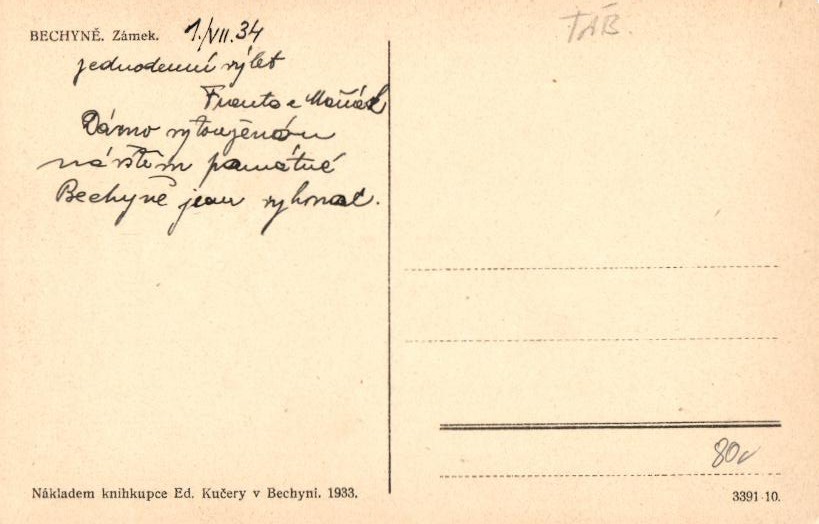 BECHYNĚ. Zámek. 1./VII. 34
TÁB.
jednodenní výlet
Franta a
Dávno vytouženou
památné
Bechyně jsem vykonal.
80,-
Nákladem knihkupce Ed. Kučery v Bechyni. 1933.
3391-10.